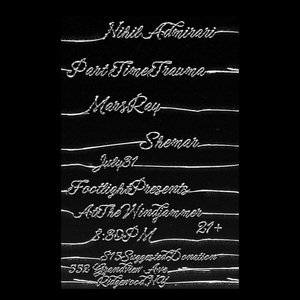 Nihil Admirari
Part Time Trauma
Mars Ray
Shemar
July 31
Footlight Presents
At The Windjammer
8:30PM 21+
$15 Suggested Donation
552 Grandview Ave,
Ridgewood, NY